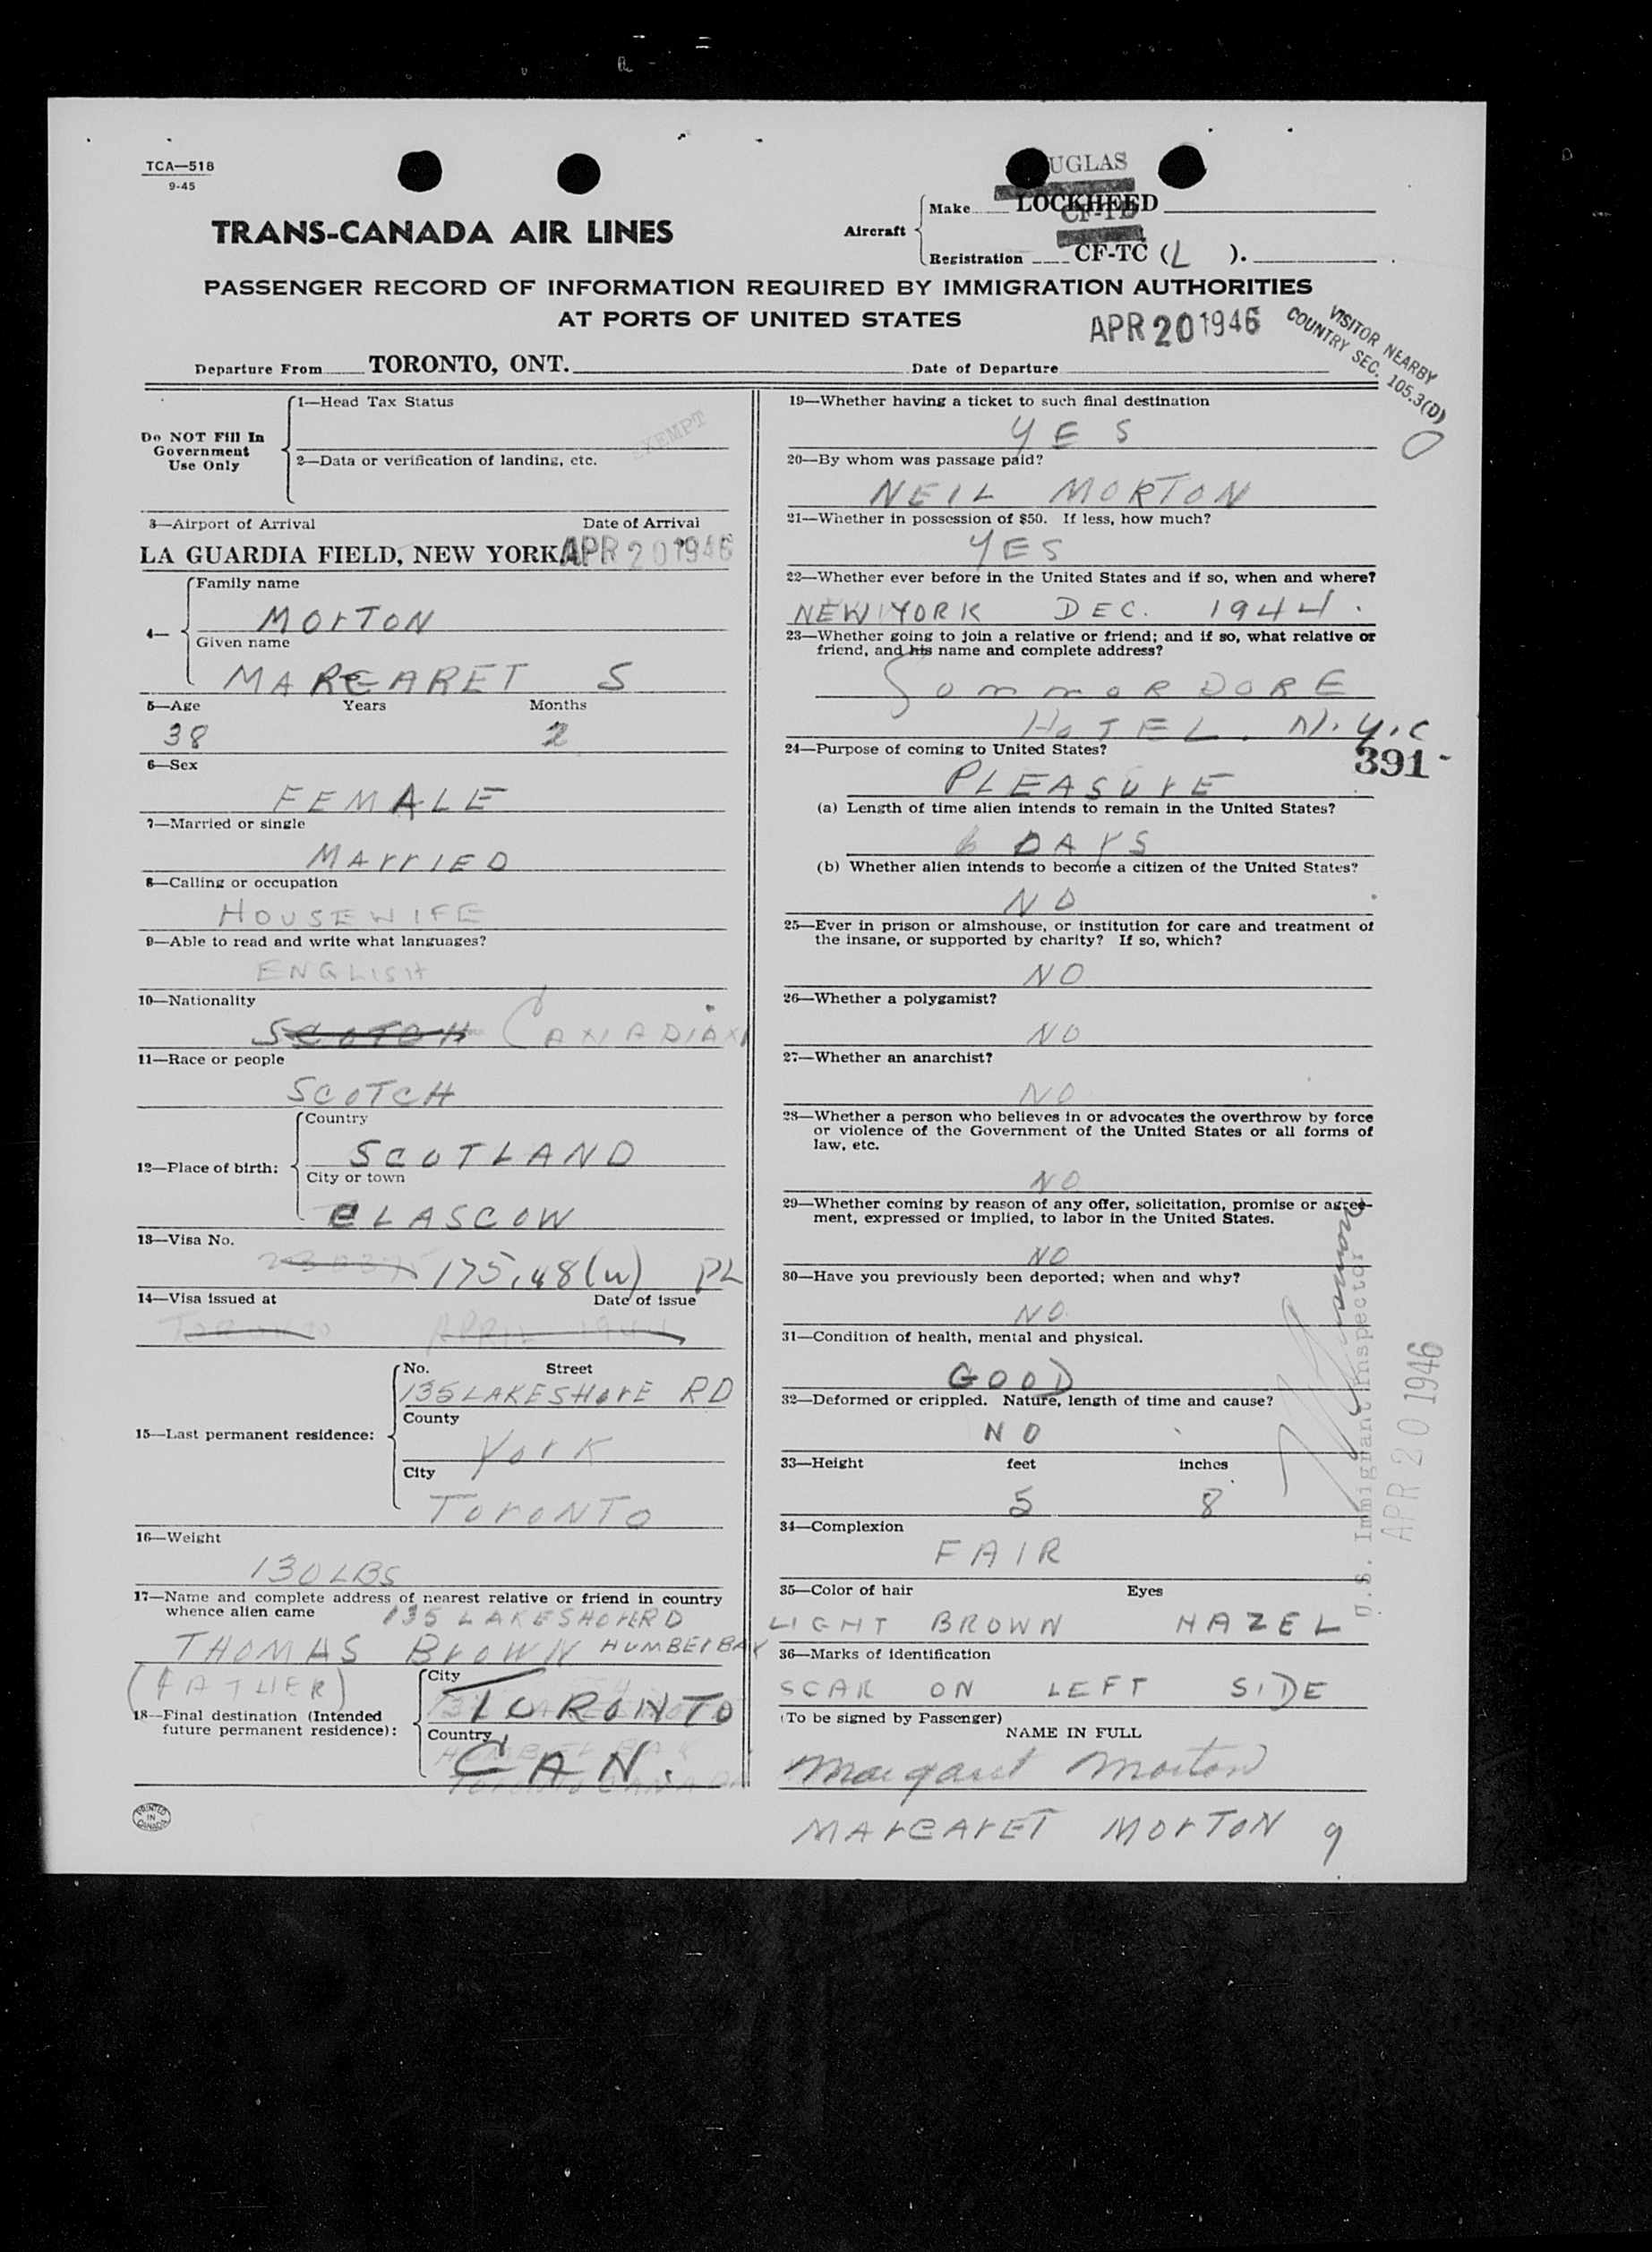 TCA—518
9-45
UGLAS
TRANS-CANADA AIR LINES
Aircraft
Make LOCKHEED
CF-TD
Registration CF-TC (L ).
PASSENGER RECORD OF INFORMATION REQUIRED BY IMMIGRATION AUTHORITIES
AT PORTS OF UNITED STATES
APR 20 1946
VISITOR NEARBY
COUNTRY SEC. 105.3(D)
Departure From TORONTO, ONT.
Date of Departure
Do NOT Fill In
Government
Use Only
1—Head Tax Status
EXEMPT
2—Data or verification of landing, etc.
3—Airport of Arrival Date of Arrival
LA GUARDIA FIELD, NEW YORK APR 20 1946
4—
Family name
MOrTON
Given name
MARGARET S
5—Age Years Months
38 2
6—Sex
FEMALE
7—Married or single
MArrIED
8—Calling or occupation
HOUSEWIFE
9—Able to read and write what languages?
ENGLISH
10—Nationality
SCOTCH CANADIAN
11—Race or people
SCOTCH
12—Place of birth:
Country
SCOTLAND
City or town
GLASGOW
13—Visa No.
175.48(w) PL
14—Visa issued at Date of issue
TORONTO APRIL 1944
15—Last permanent residence:
No. Street
135 LAKESHOrE RD
County
YorK
City
TOrONTO
16—Weight
130 LBS
17—Name and complete address of nearest relative or friend in country
whence alien came
135 LAKESHORRD
THOMAS BrOWN HUMBErBAY
(FATHER)
18—Final destination (Intended
future permanent residence):
City
TORONTO
Country
CAN.
PRINTED
IN
CANADA
19—Whether having a ticket to such final destination
YES
20—By whom was passage paid?
NEIL MORTON
21—Whether in possession of $50. If less, how much?
YES
22—Whether ever before in the United States and if so, when and where?
NEW YORK DEC. 1944.
23—Whether going to join a relative or friend; and if so, what relative or
friend, and his name and complete address?
CommoRDORE
HOTEL. N.Y.C
391-
24—Purpose of coming to United States?
PLEASUrE
(a) Length of time alien intends to remain in the United States?
6 DAYS
(b) Whether alien intends to become a citizen of the United States?
NO
25—Ever in prison or almshouse, or institution for care and treatment of
the insane, or supported by charity? If so, which?
NO
26—Whether a polygamist?
NO
27—Whether an anarchist?
NO
28—Whether a person who believes in or advocates the overthrow by force
or violence of the Government of the United States or all forms of
law, etc.
NO
29—Whether coming by reason of any offer, solicitation, promise or agree-
ment, expressed or implied, to labor in the United States.
NO
30—Have you previously been deported; when and why?
NO.
31—Condition of health, mental and physical.
GOOD
32—Deformed or crippled. Nature, length of time and cause?
NO
33—Height feet inches
5 8
34—Complexion
FAIR
35—Color of hair Eyes
LIGHT BROWN HAZEL
36—Marks of identification
SCAR ON LEFT SIDE
(To be signed by Passenger)
NAME IN FULL
Margaret Morton
MArGArET MOrTON 9
U.S. Immigrant Inspector
APR 20 1946